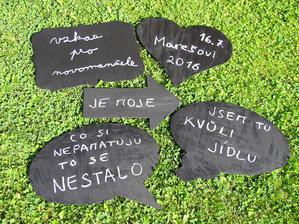 vzkaz
pro
novomanžele
16.7.
Marešovi
2016
JE MOJE
CO SI
NEPAMATUJU
TO SE
NESTALO
JSEM TU
KVŮLI
JÍDLU